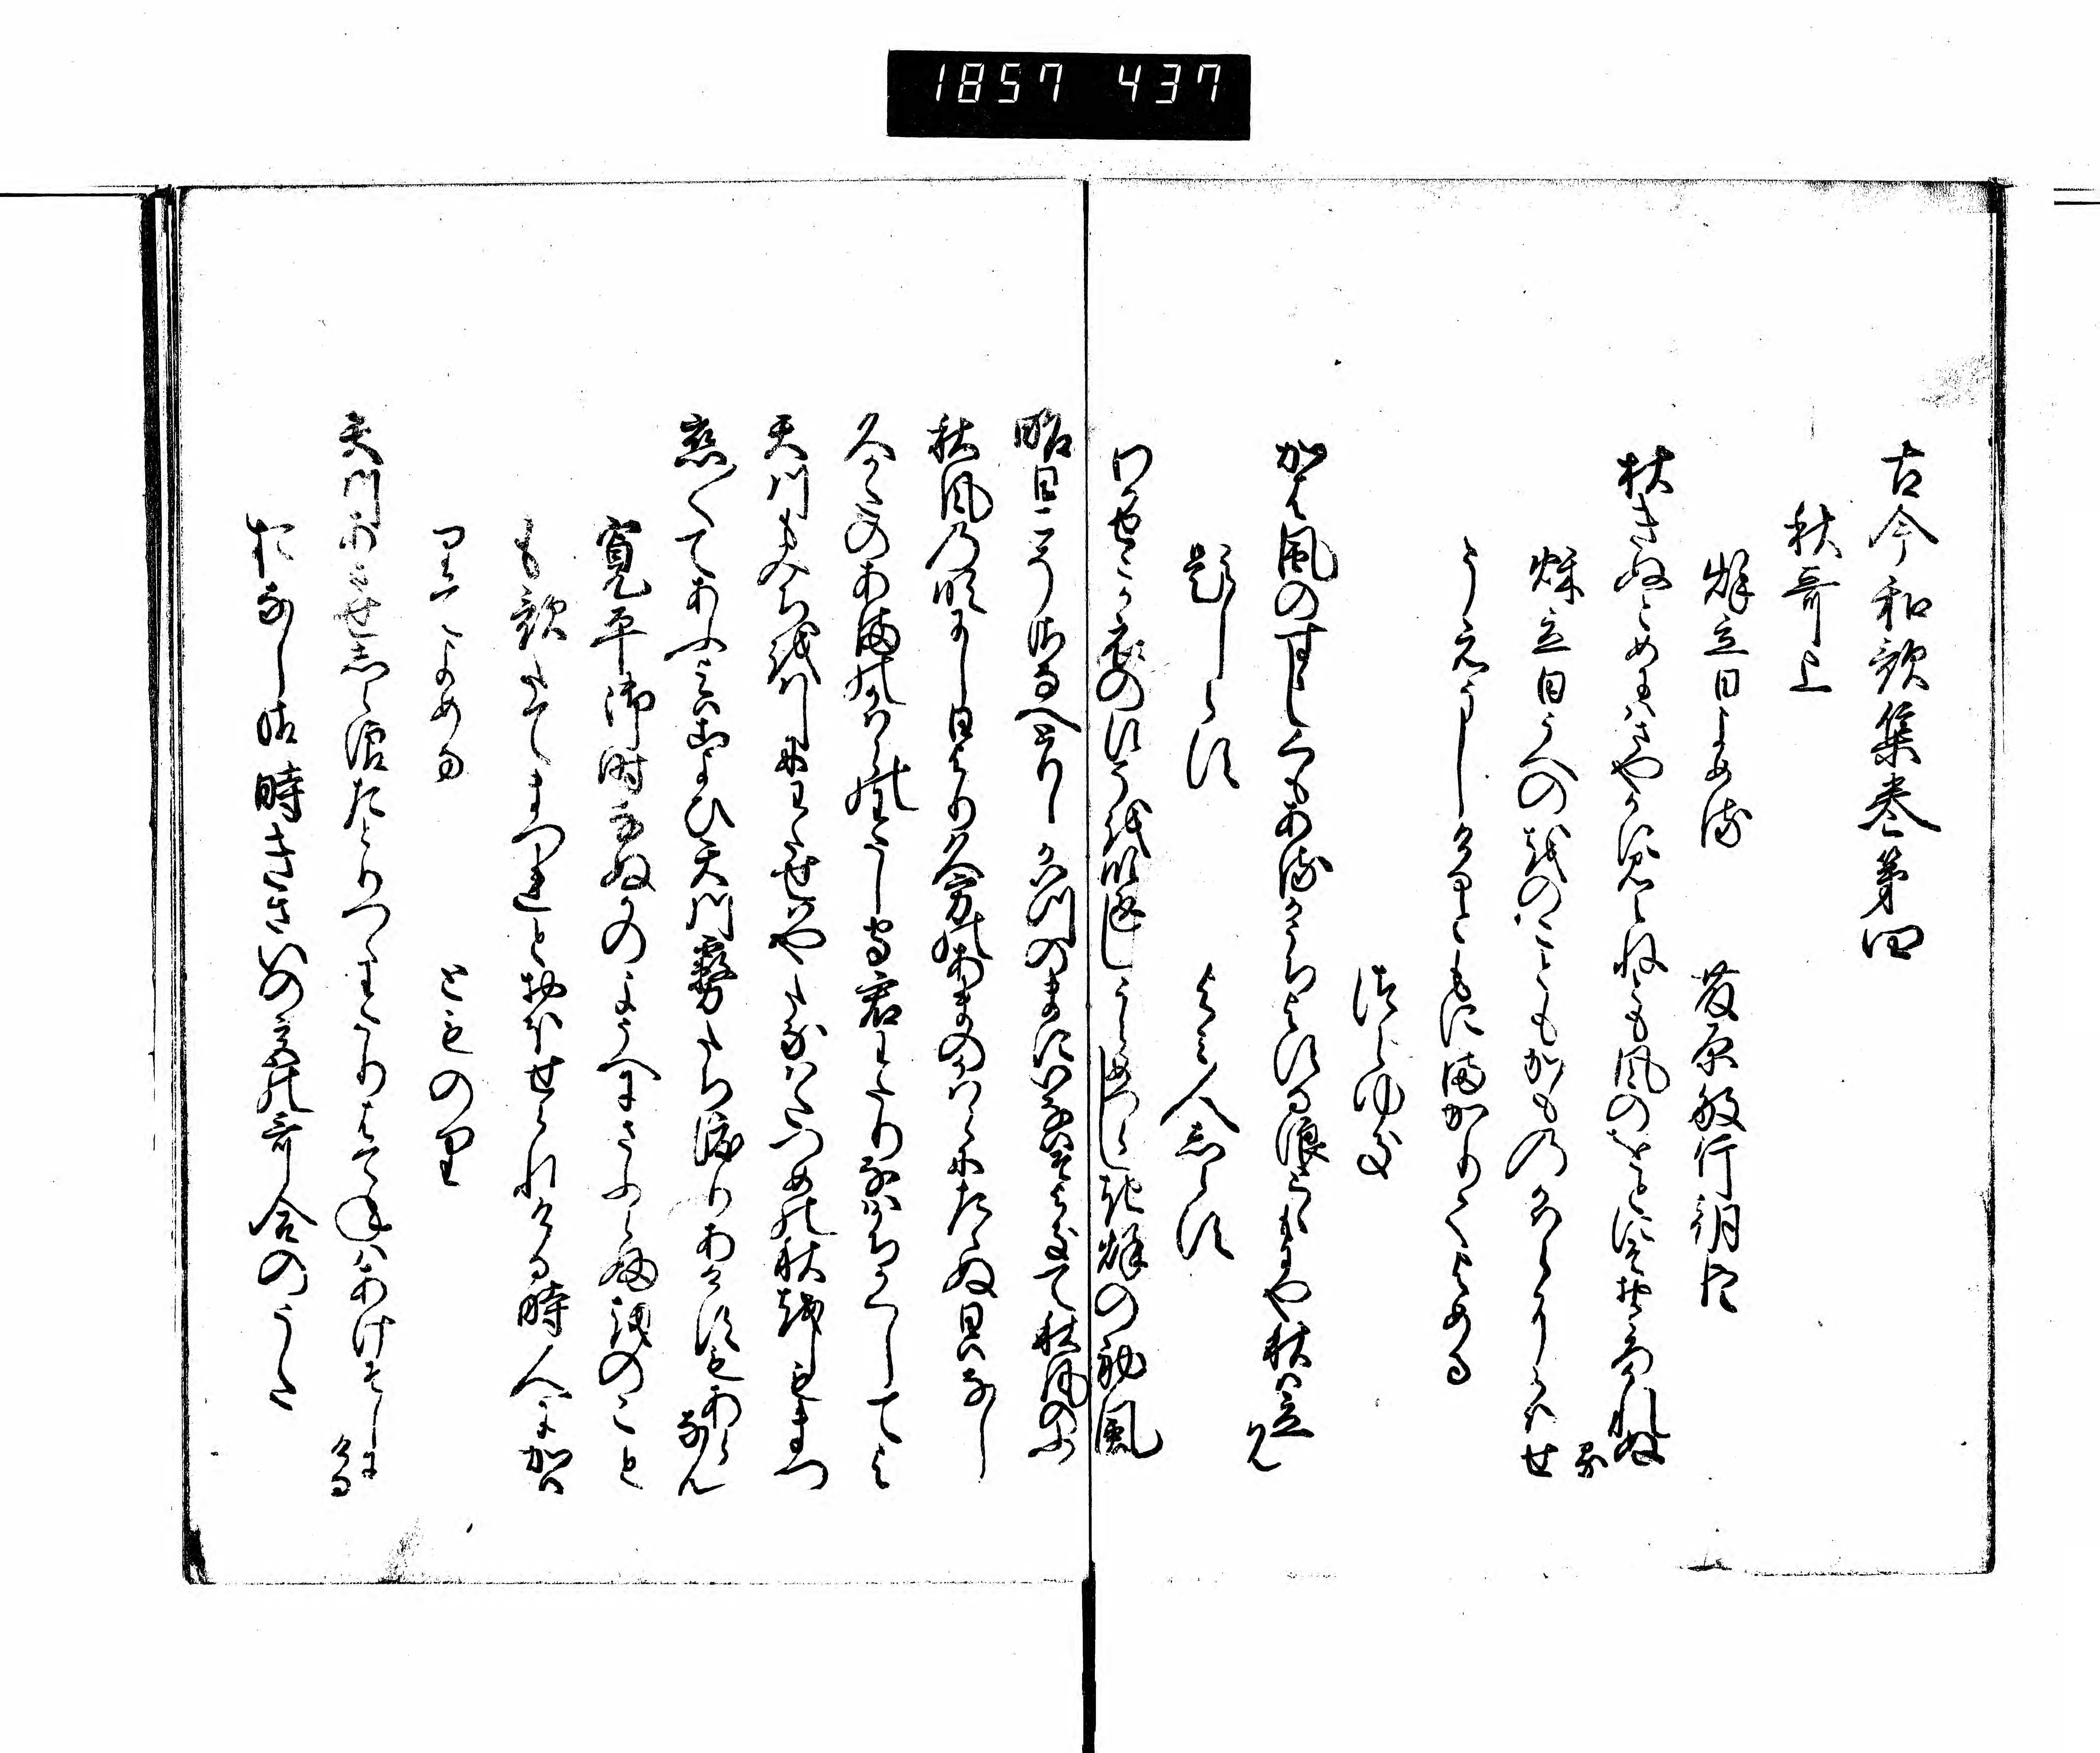 1857 437
古今和歌集巻第四
秋哥上
秋立日よめる 藤原敏行朝臣
秋きぬとめにはさやかに見えねとも風のをとにそおとろかれぬる
秋立日うへのをのこともかものかはらにかはせ
うえうしけるともにまかりてよめる
つらゆき
かは風のすゝしくもあるかうちよする浪とともにや秋は立らん
題しらす よみ人しらす
わかせこか衣のすそを吹返しうらめつらしき秋の初風
昨日こそさなへとりしかいつのまにいなはそよきて秋風のふく
秋風の吹にし日より久方のあまのかはらにたゝぬ日はなし
久かたのあまのかはらのわたし守君わたりなはかちかくしてよ
天川もみちをはしにわたせはやたなはたつめの秋をしもまつ
恋〳〵てあふ夜はこよひ天川霧たち渡りあけすもあらなん
寛平御時なぬかのようへにさふらふをのこと
も歌たてまつれとおほせられける時人にかは
りてよめる
とものり
天川あさせしら浪たとりつゝわたりはてねはあけそしにける
おなし御時きさいの宮の哥合のうた